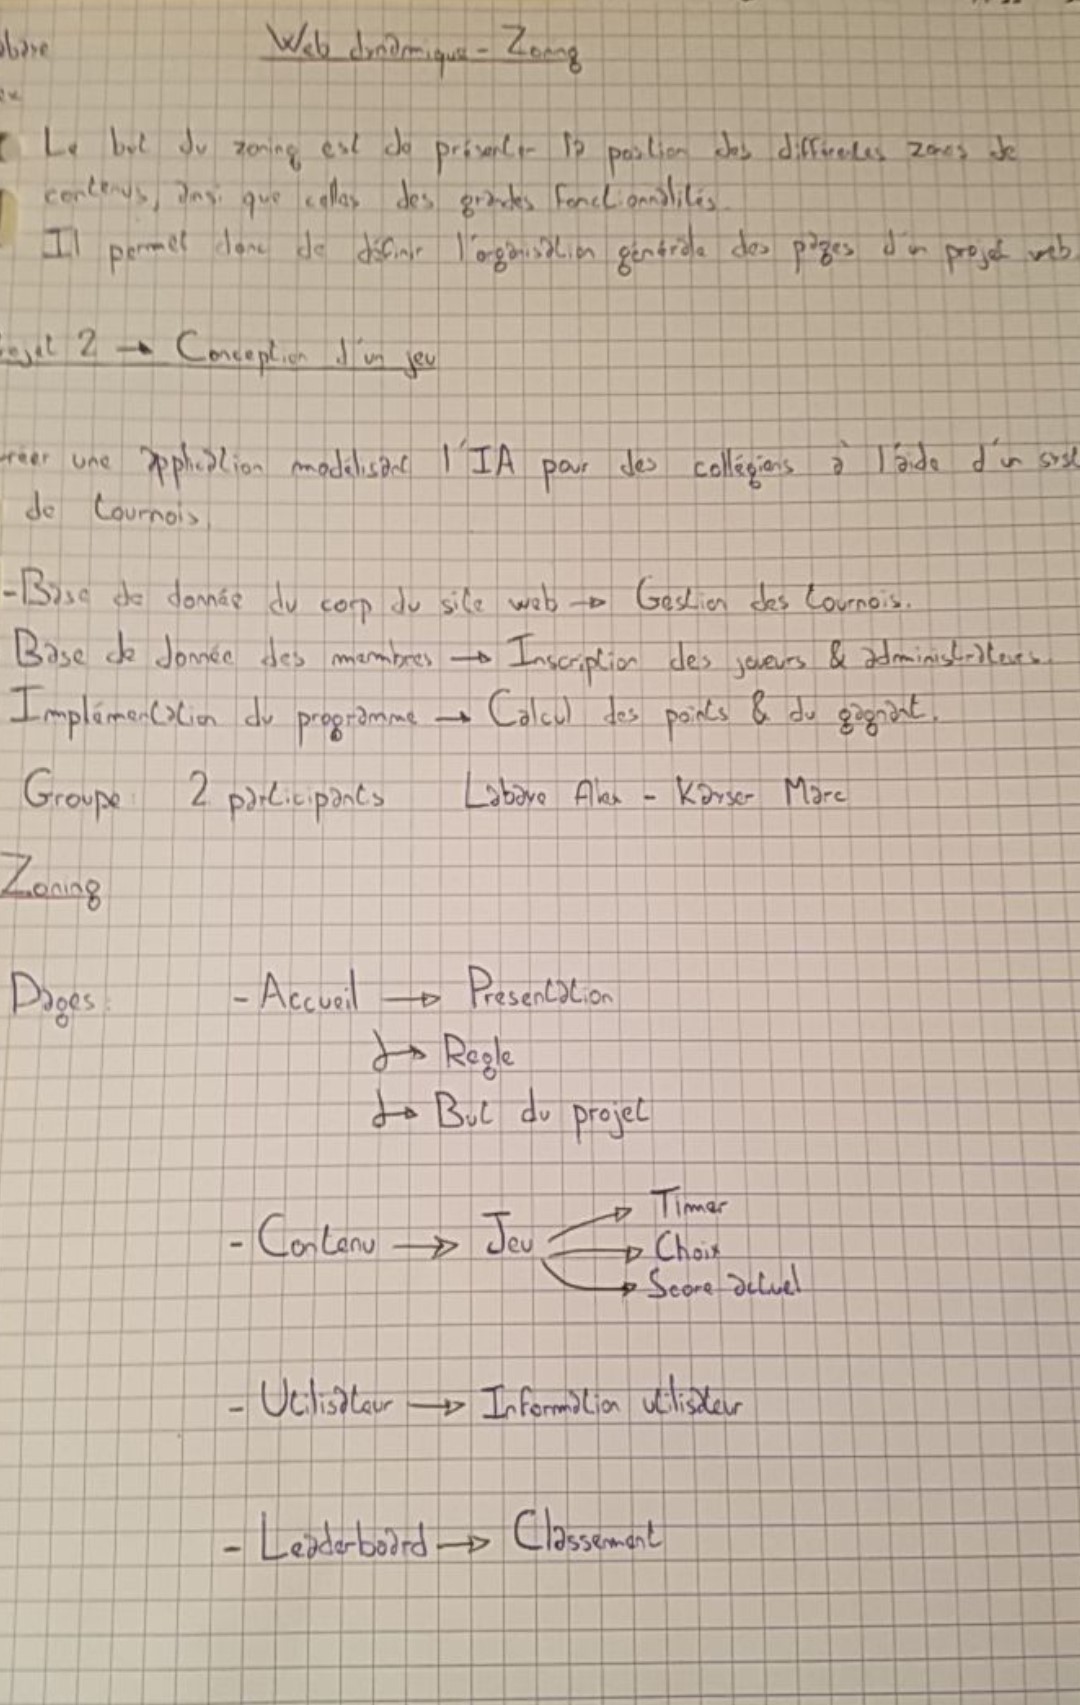 Web dynamique - Zoning
Le but du zoning est de présenter la position des différentes zones de
contenus, ainsi que celles des grandes fonctionnalités.
Il permet donc de définir l'organisation générale des pages d'un projet web
2 → Conception d'un jeu
une application modélisant l'IA pour des collégiens à l'aide d'un syst
de tournois.
- Base de donnée du corp du site web → Gestion des tournois.
Base de donnée des membres → Inscription des joueurs & administrateurs.
Implémentation du programme → Calcul des points & du gagnant.
Groupe : 2 participants Labare Alex - Kayser Marc
Zoning
Pages :
- Accueil → Presentation
→ Regle
→ But du projet
- Contenu → Jeu → Timer
→ Choix
→ Score actuel
- Utilisateur → Information utilisateur
- Leaderboard → Classement